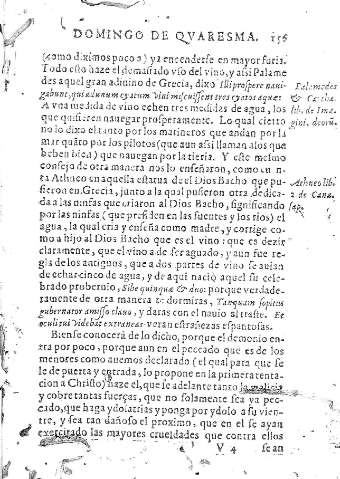 DOMINGO DE QVARESMA. 156
(como diximos poco a) y a encenderse en mayor furia.
Todo esto haze el demasiado vso del vino, y assi Palame
des a quel gran adiuino de Grecia, dixo Illi prospere naui
gabunt, qui ad unum cyatum vini miscuissent tres cyatos aquæ:
A vna medida de vino echen tres medidas de agua, los
que quisieren nauegar prosperamente. Lo qual cierto
no lo dixo el tanto por los marineros que andan por la
mar quãto por los pilotos (que aun assi llaman a los que
beben bien) que nauegan por la tierra. Y este mesmo
consejo de otra manera nos lo enseñaron, como cuẽ
ta Atheneo en aquella estatua de el Dios Bacho que pu
sieron en Grecia, junto a la qual pusieron otra dedica
da a las ninfas que criaron al Dios Bacho, significando
por las ninfas (que presiden en las fuentes y los rios) el
agua, la qual cria y enseña como madre, y corrige co
mo a hijo al Dios Bacho que es el vino: que es dezir
claramente, que el vino a de ser aguado, y aun fue re
gla de los antiguos, que a dos partes de vino se auian
de echar cinco de agua, y de aqui nacio aquel su cele
brado prouerbio, Bibe quinque & duo: porque verdade
ramente de otra manera te dormiras, Tanquam sopitus
gubernator amisso clauo, y daras con el nauio al traste. Et
oculi tui videbũt extraneas veran estrañezas espantosas.
Bien se conocerà de lo dicho, porque el demonio en
tra por poco, porque aun en el peccado que es de los
menores como auemos declarado (el qual para que se
le de puerta y entrada, lo propone en la primera tenta-
cion a Christo) haze el, que se adelante tanto la malicia
y cobre tantas fuerças, que no solamente sea ya pec-
cado, que haga ydolatrias y ponga por ydolo a su vien-
tre, y sea tan dañoso el proximo, que en el se ayan
exercitado las mayores crueldades que contra ellos
V 4 sean
Palamedes
lib. de Ima
gini. deorũ.
Atheneo lib.
2 de Cæna